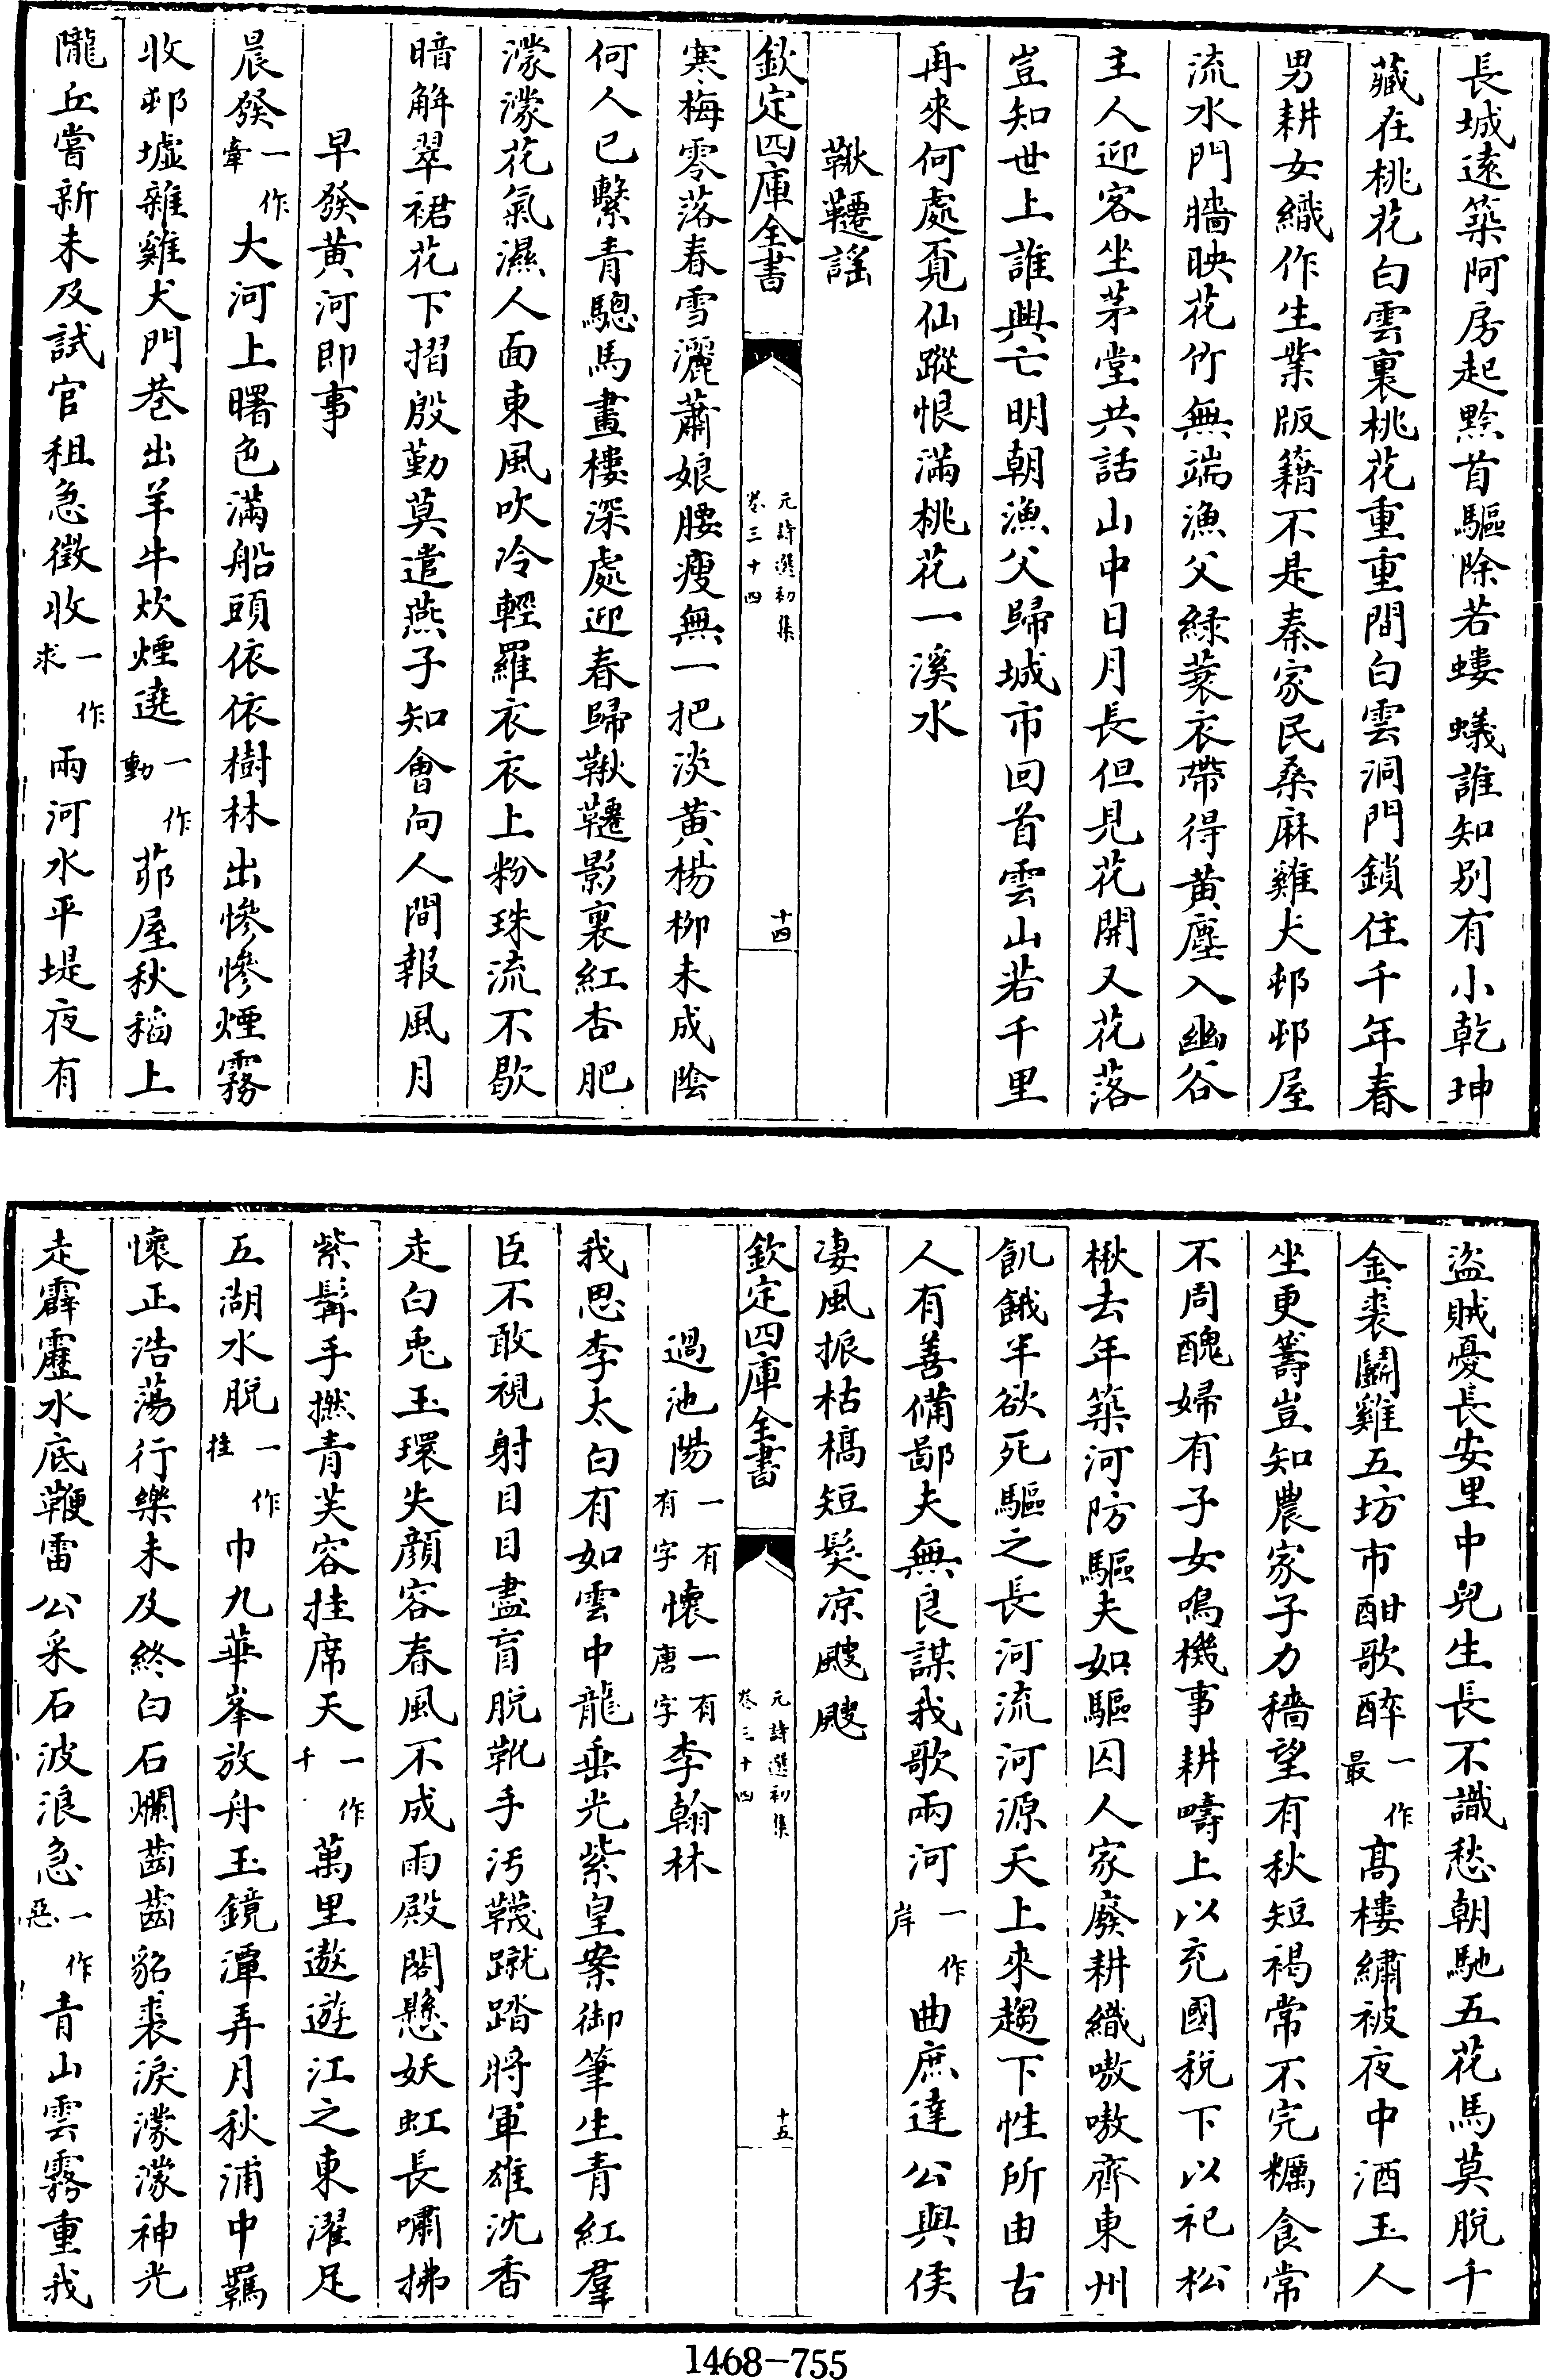 長城遠築阿房起黔首驅除若螻蟻誰知别有小乾坤
藏在桃花白雲裏桃花重重間白雲洞門鎖住千年春
男耕女織作生業版籍不是秦家民桑麻雞犬邨邨屋
流水門牆映花竹無端漁父緑蓑衣帶得黄塵入幽谷
主人迎客坐茅堂共話山中日月長但見花開又花落
豈知世上誰興亡明朝漁父歸城市回首雲山若千里
再來何處覓仙蹤恨滿桃花一溪水
鞦韆謡
欽定四庫全書
元詩選初集
卷三十四
十四
寒梅零落春雪灑蕭娘腰瘦無一把淡黄楊柳未成陰
何人已繫青驄馬畫樓深處迎春歸鞦韆影裏紅杏肥
濛濛花氣濕人面東風吹冷輕羅衣衣上粉珠流不歇
暗解翠裙花下摺殷勤莫遣燕子知會向人間報風月
早發黄河即事
晨發一作牽大河上曙色滿船頭依依樹林出慘慘煙霧
收邨墟雜雞犬門巷出羊牛炊煙遶一作動茆屋秋稻上
隴丘嘗新未及試官租急徵收一作求兩河水平堤夜有
盜賊憂長安里中兒生長不識愁朝馳五花馬莫脫千
金裘鬬雞五坊市酣歌醉一作最高樓繡被夜中酒玉人
坐更籌豈知農家子力穡望有秋短褐常不完糲食常
不周醜婦有子女鳴機事耕疇上以充國稅下以祀松
楸去年築河防驅夫如驅囚人家廢耕織嗷嗷齊東州
飢餓半欲死驅之長河流河源天上來趨下性所由古
人有善備鄙夫無良謀我歌兩河一作岸曲庶達公與侯
凄風振枯槁短髮凉颼颼
欽定四庫全書
元詩選初集
卷三十四
十五
過池陽一有有字懷一有唐字李翰林
我思李太白有如雲中龍垂光紫皇案御筆生青紅羣
臣不敢視射目目盡盲脫靴手汚韈蹴踏將軍雄沈香
走白兎玉環失顔容春風不成雨殿閣懸妖虹長嘯拂
紫髯手撚青芙容挂席天一作千萬里遨遊江之東濯足
五湖水脫一作挂巾九華峯放舟玉鏡潭弄月秋浦中羈
懷正浩蕩行樂未及終白石爛齒齒貂裘淚濛濛神光
走霹靂水底鞭雷公采石波浪急一作惡青山雲霧重我
1468-755